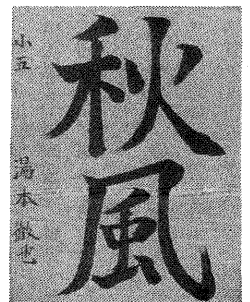 秋風
小五 湯本徹也